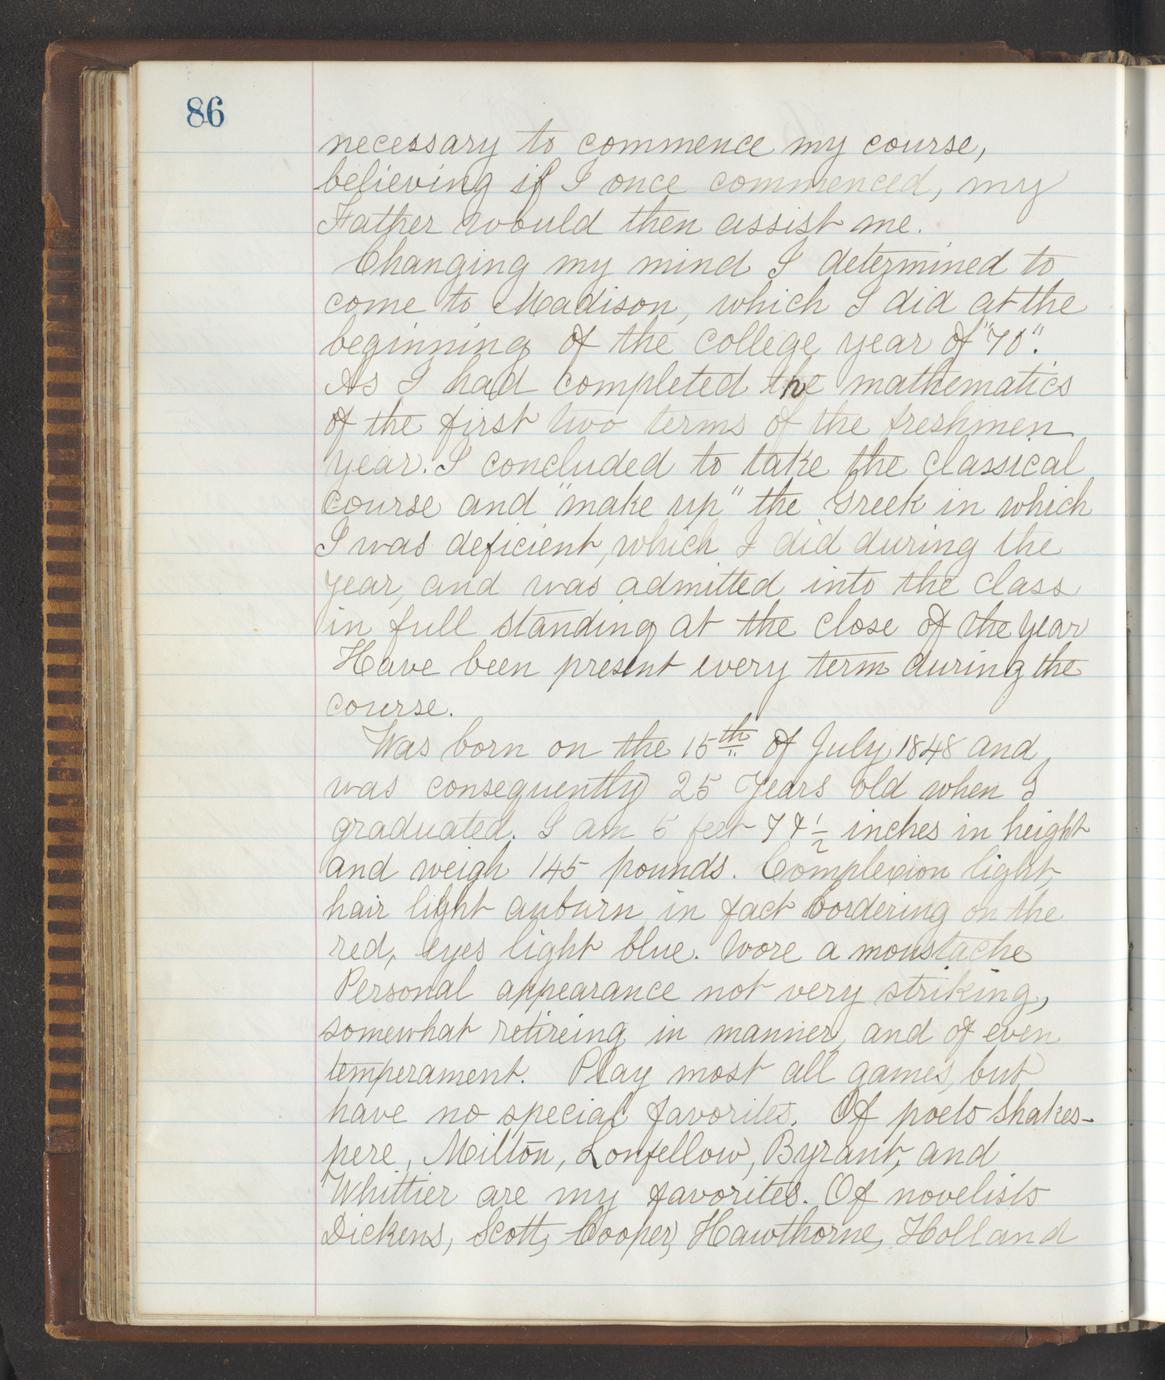 86
necessary to commence my course,
believing if I once commenced, my
Father would then assist me.
Changing my mind I determined to
come to Madison, which I did at the
beginning of the college year of "70".
As I had completed the mathematics
of the first two terms of the freshmen
year. I concluded to take the classical
course and "make up" the Greek in which
I was deficient, which I did during the
year, and was admitted into the class
in full standing at the close of the year
Have been present every term during the
course.
Was born on the 15th of July 1848 and
was consequently 25 years old when I
graduated. I am 5 feet 7 & 1/2 inches in height
and weigh 145 pounds. Complexion light,
hair light auburn, in fact bordering on the
red, eyes light blue. Wore a moustache
Personal appearance not very striking,
somewhat retireing in manner, and of even
temperament. Play most all games, but
have no special favorites. Of poets Shakes-
pere, Milton, Lonfellow, Byrant, and
Whittier are my favorites. Of novelists
Dickens, Scott, Cooper, Hawthorne, Holland